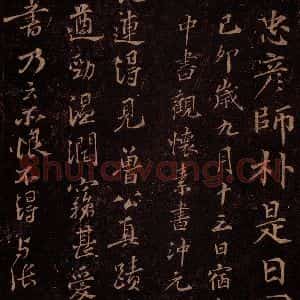 忠彥師朴是日
己卯歲九月十五日宿
中書觀懷素書沖元
連得見魯公真蹟
遒勁溫潤甚愛
書乃云亦恨不得与張
Shufawang.CN